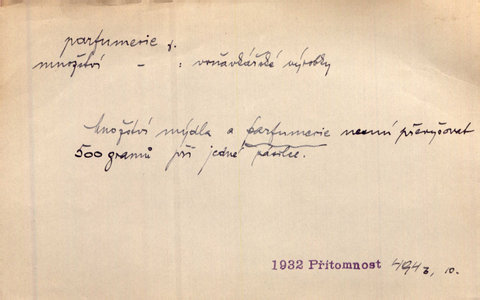 parfumerie f.
množství - : voňavkářské výrobky
Množství mýdla a parfumerie nesmí převyšovat
500 gramů při jedné zásilce.
1932 Přítomnost 494 3, 10.